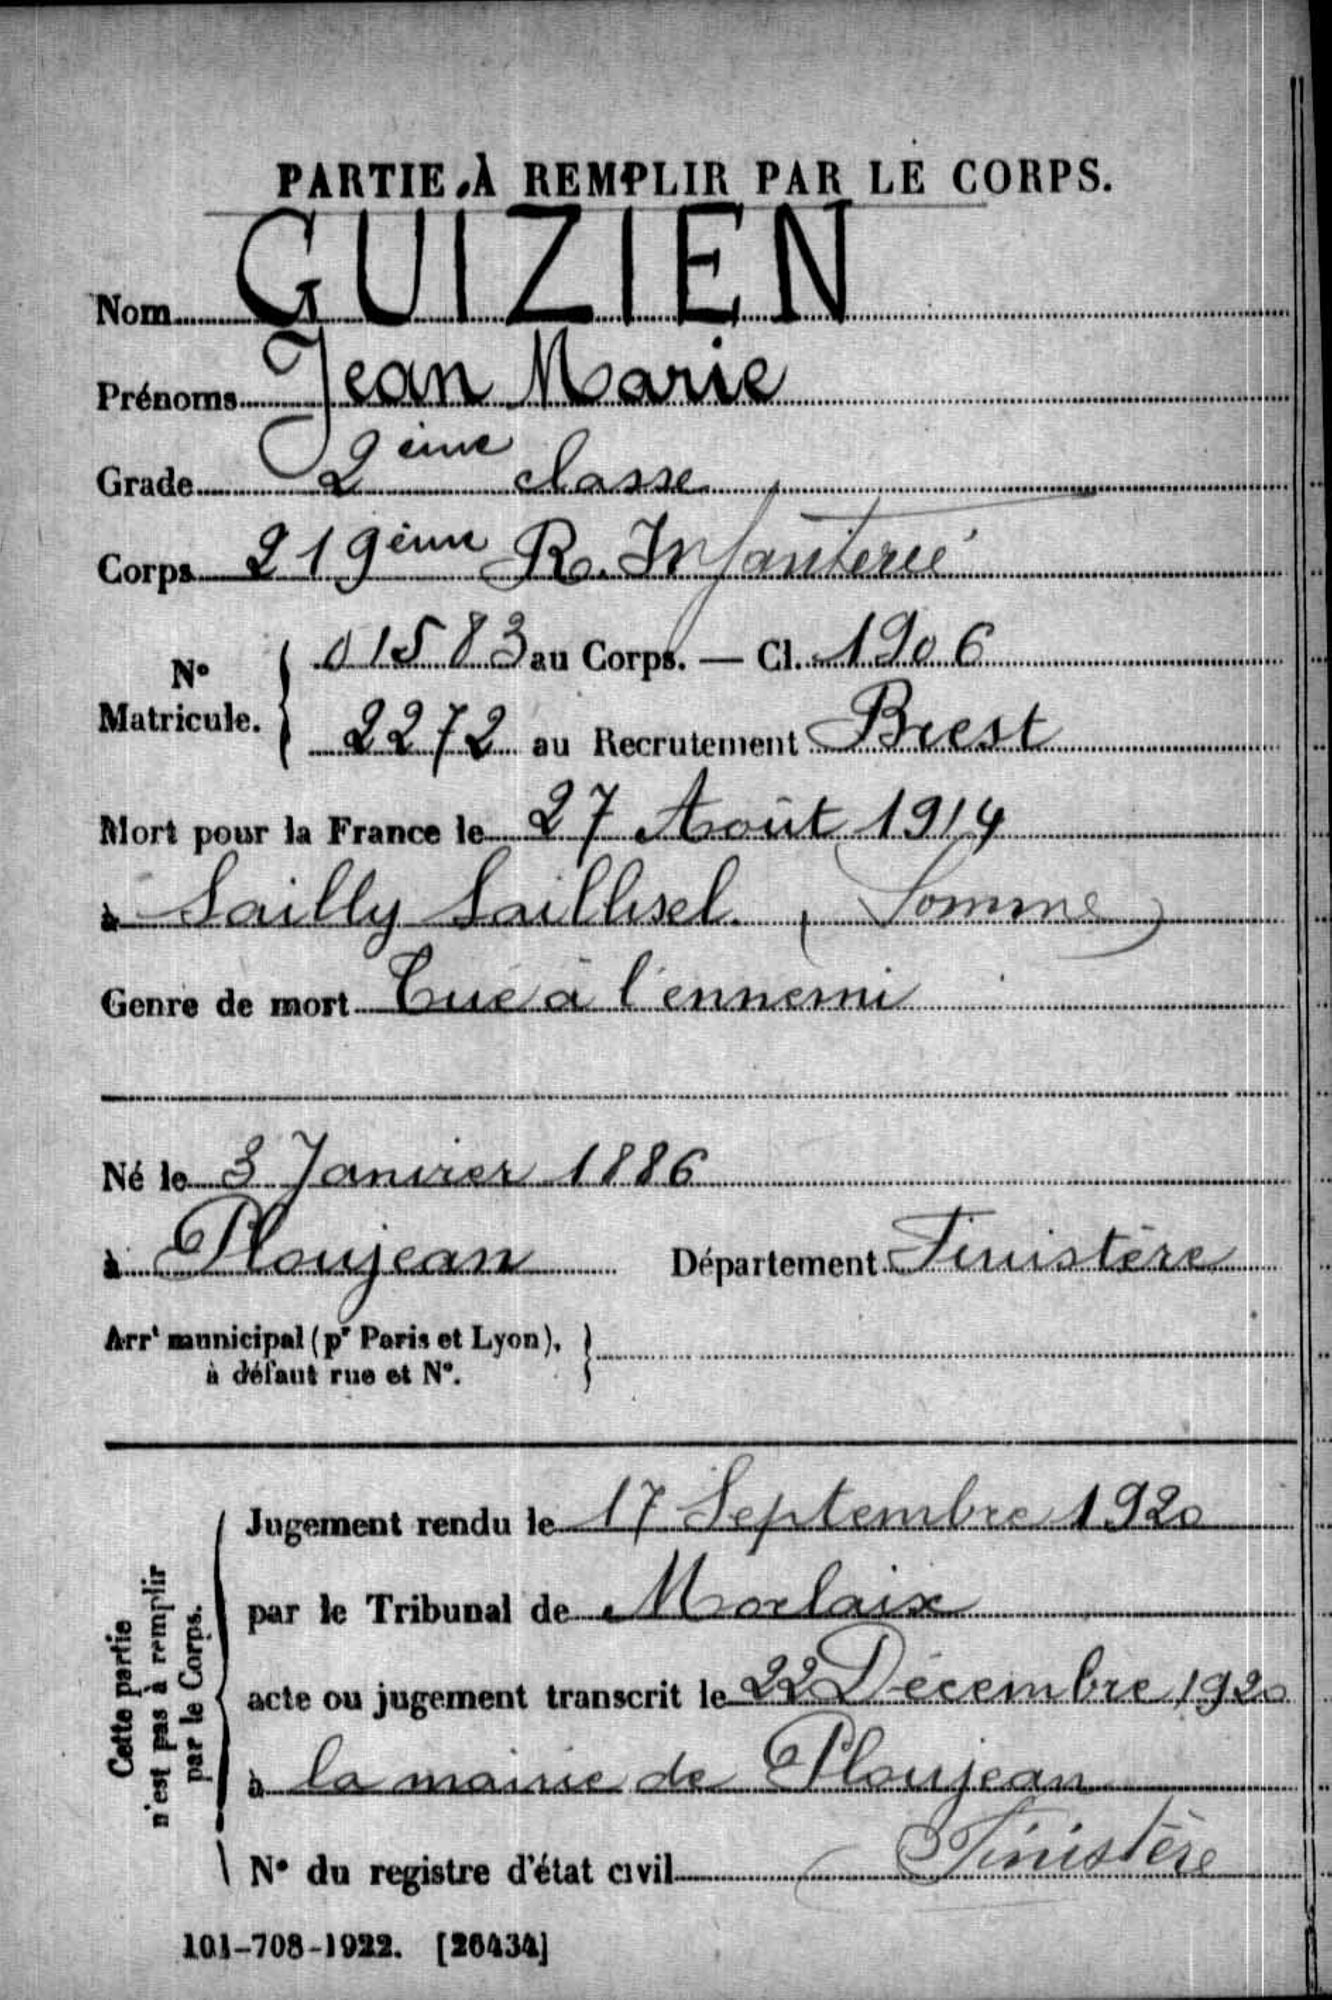 PARTIE À REMPLIR PAR LE CORPS.
Nom GUIZIEN
Prénoms Jean Marie
Grade 2ème classe
Corps 219ème R. Infanterie
N° Matricule. { 01583 au Corps. — Cl. 1906
2272 au Recrutement Brest
Mort pour la France le 27 Août 1914
à Sailly Saillisel (Somme)
Genre de mort Tué à l'ennemi
Né le 3 Janvier 1886
à Ploujean Département Finistère
Arrt municipal (pr Paris et Lyon), }
à défaut rue et N°.
Cette partie
n'est pas à remplir
par le Corps.
Jugement rendu le 17 Septembre 1920
par le Tribunal de Morlaix
acte ou jugement transcrit le 22 Décembre 1920
à la mairie de Ploujean
N° du registre d'état civil (Finistère
101-708-1922. [26434]